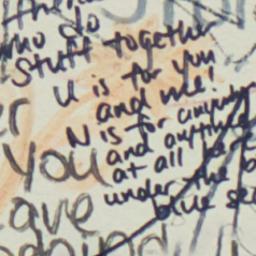 who do
stuff together
U is for you
and me!
N is for anywhere
and anytime
at all
under the
blue sea
er
you
ave